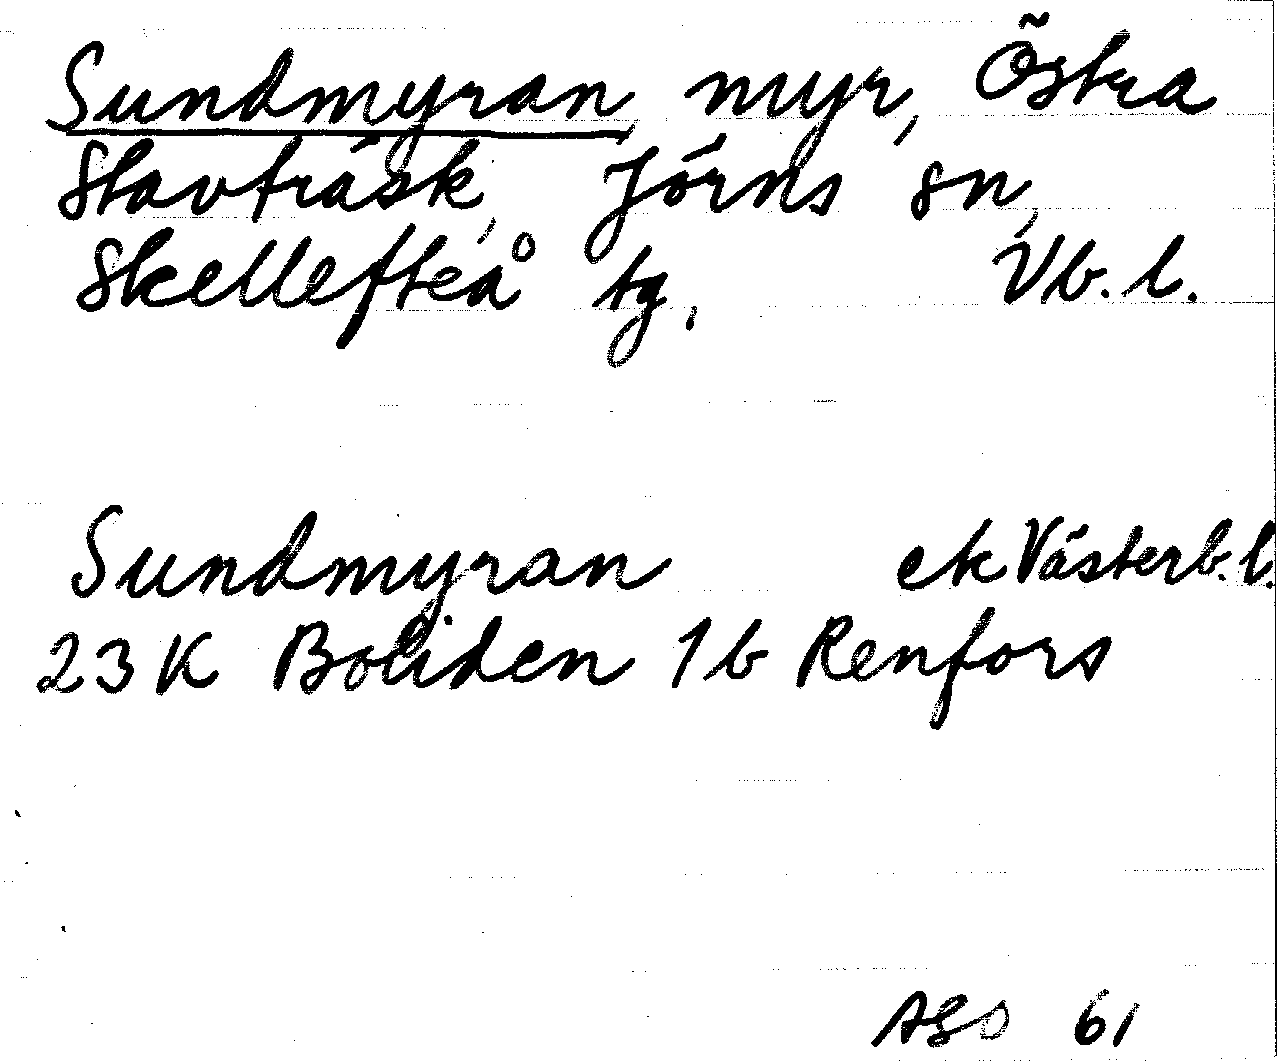 Sundmyran, myr, Östra
Slavträsk, Jörns sn,
Skellefteå tg, Vb. l.
Sundmyran ek Västerb. l.
23 K Boliden 1 b Renfors
ASO 61